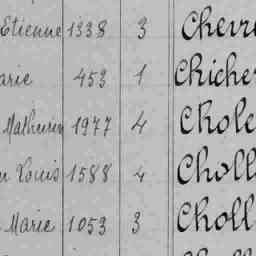 Etienne 1338 3 Chevr
arie 453 1 Chiche
Mathurin 1977 4 Chole
Louis 1588 4 Choll
Marie 1053 3 Choll